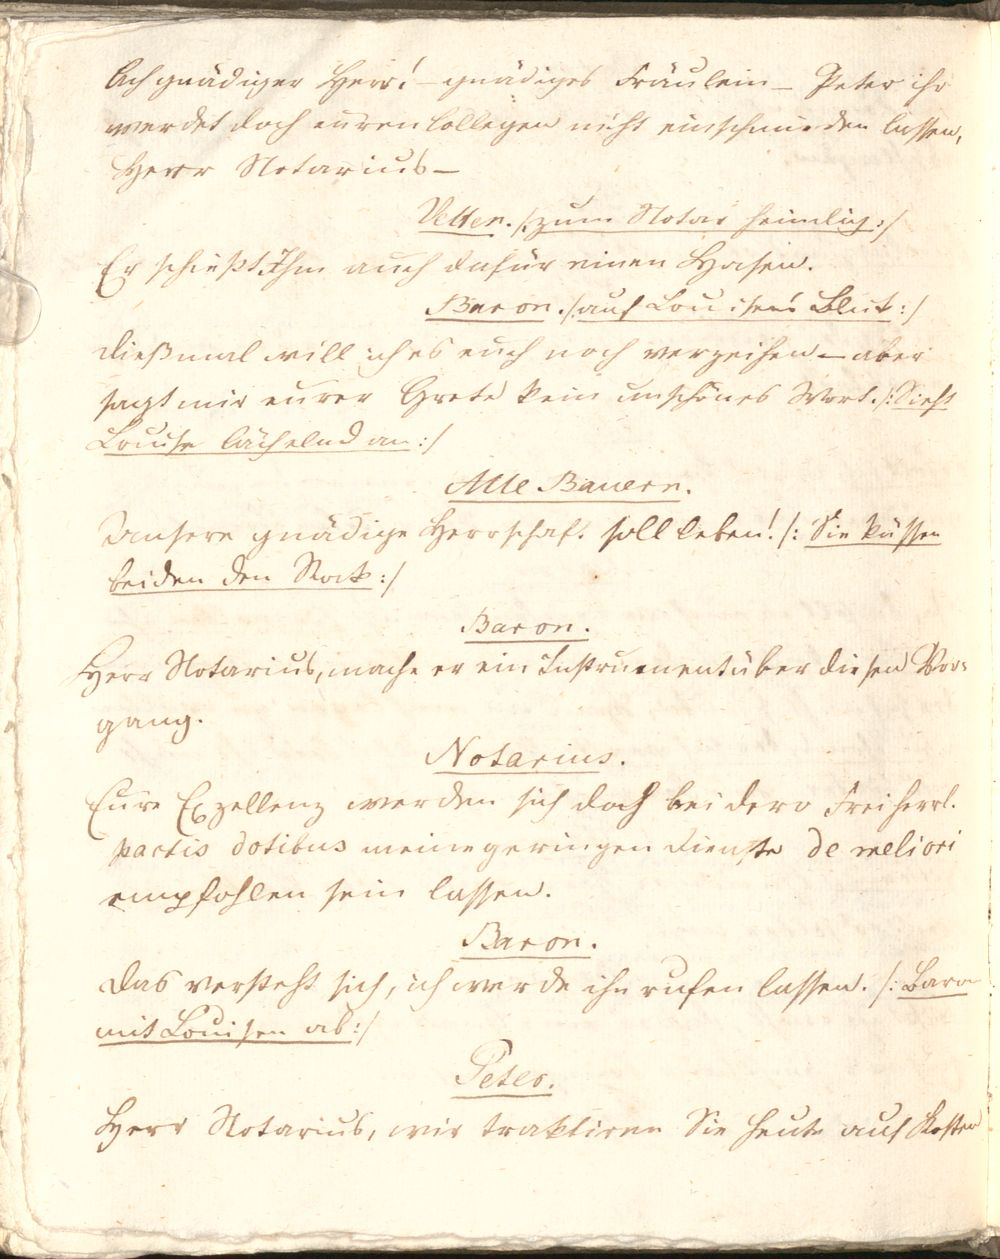 Ach gnädiger Herr! – gnädiges Fräulein – Peter ihr
werdet doch euren Collegen nicht einschmieden lassen,
Herr Notarius –
Velten. /: zum Notar heimlich :/
Er schießt Ihm auch dafür einen Hasen.
Baron. /: auf Louisens Blick :/
Dießmal will ich es euch noch verzeihen – aber
sagt mir eurer Grete kein unschönes Wort. /: Sieht
Louise lächelnd an :/
Alle Bauern.
Unsere gnädige Herrschaft soll leben! /: Sie küssen
beiden den Rock :/
Baron.
Herr Notarius, mache er ein Instrument über diesen Vor=
gang.
Notarius.
Eure Exzellenz werden sich doch bei dero Freiherrl.
pactis dotibus meine geringen Dienste de meliori
empfohlen sein lassen.
Baron.
Das versteht sich, ich werde ihn rufen lassen. /: Baron
mit Louisen ab :/
Peter.
Herr Notarius, wir traktiren Sie heute auf Kosten